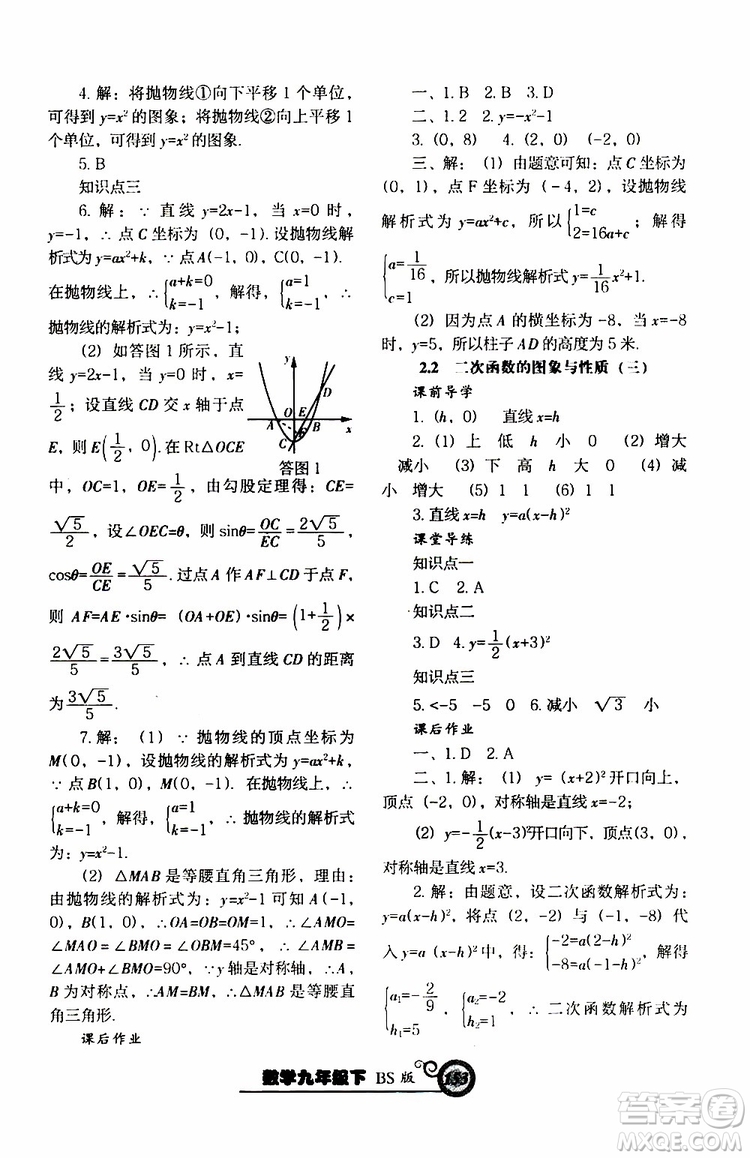 4. 解：将抛物线①向下平移 1 个单位，
可得到 y=x² 的图象；将抛物线②向上平移 1
个单位，可得到 y=x² 的图象.
5. B
知识点三
6. 解：∵ 直线 y=2x-1，当 x=0 时，
y=-1，∴ 点 C 坐标为（0，-1）.设抛物线解
析式为 y=ax²+k，∵ 点 A（-1，0）、C（0，-1）.
在抛物线上，∴ {a+k=0 k=-1，解得，{a=1 k=-1，∴
抛物线的解析式为：y=x²-1；
（2）如答图 1 所示，直线
y=2x-1，当 y=0 时，x=
1/2；设直线 CD 交 x 轴于点
E，则 E(1/2，0).在 Rt△OCE
中，OC=1，OE=1/2，由勾股定理得：CE=
√5/2，设∠OEC=θ，则 sinθ=OC/EC=2√5/5，
cosθ=OE/CE=√5/5.过点 A 作 AF⊥CD 于点 F，
则 AF=AE·sinθ=（OA+OE）·sinθ=(1+1/2)×
2√5/5=3√5/5，∴ 点 A 到直线 CD 的距离
为3√5/5.
y
D
A
O
E
B
x
C
答图 1
7. 解：（1）∵ 抛物线的顶点坐标为
M（0，-1），设抛物线的解析式为 y=ax²-1，
∵ 点 B（1，0），A（-1，0）.在抛物线上，∴
{a+k=0 k=-1，解得，{a=1 k=-1，∴ 抛物线的解析式
为：y=x²-1.
（2）△MAB 是等腰直角三角形，理由：
由抛物线的解析式为：y=x²-1 可知 A（-1，
0），B（1，0），∴OA=OB=OM=1，∴∠AMO=
∠MAO =∠BMO=∠OBM=45°，∴∠AMB=
∠AMO+∠BMO=90°，∵y 轴是对称轴，∴A、
B 为对称点，∴AM=BM，∴△MAB 是等腰直
角三角形.
课后作业
一、1. B 2. B 3. D
二、1. 2 2. y=-x²-1
3.（0，8） 4.（2，0）（-2，0）
三、解：（1）由题意可知：点 C 坐标为
（0，1），点 F 坐标为（-4，2），设抛物线
解析式为 y=ax²+c，所以{1=c 2=16a+c；解得
{a=1/16 c=1，所以抛物线解析式为 y=1/16x²+1.
（2）因为点 A 的横坐标为-8，当 x=-8
时，y=5，所以柱子 AD 的高度为 5 米.
2.2 二次函数的图象与性质（三）
课前导学
1.（h，0） 直线 x=h
2.（1）上 低 h 小 0 （2）增大
减小 （3）下 高 h 大 0 （4）减
小 增大 （5）1 1 （6）1 1
3. 直线 x=h y=a(x-h)²
课堂导练
知识点一
1. C 2. A
知识点二
3. D 4. y=1/2(x+3)²
知识点三
5. <-5 -5 0 6. 减小 √3 小
课后作业
一、1. D 2. A
二、1. 解：（1）y=（x+2)²开口向上，
顶点（-2，0），对称轴是直线 x=-2；
（2）y=-1/2(x-3)²开口向下，顶点(3，0)，
对称轴是直线 x=3.
2. 解：由题意，设二次函数解析式为：
y=a(x-h)²，将点（2，-2）与（-1，-8）代
入 y=a（x-h)²中，得：{-2=a(2-h)² -8=a(-1-h)²，解得：
{a₁=-2/9 h₁=5，{a₂=-2 h₂=1，∴ 二次函数解析式为
数学九年级下 BS 版 153
答案卷